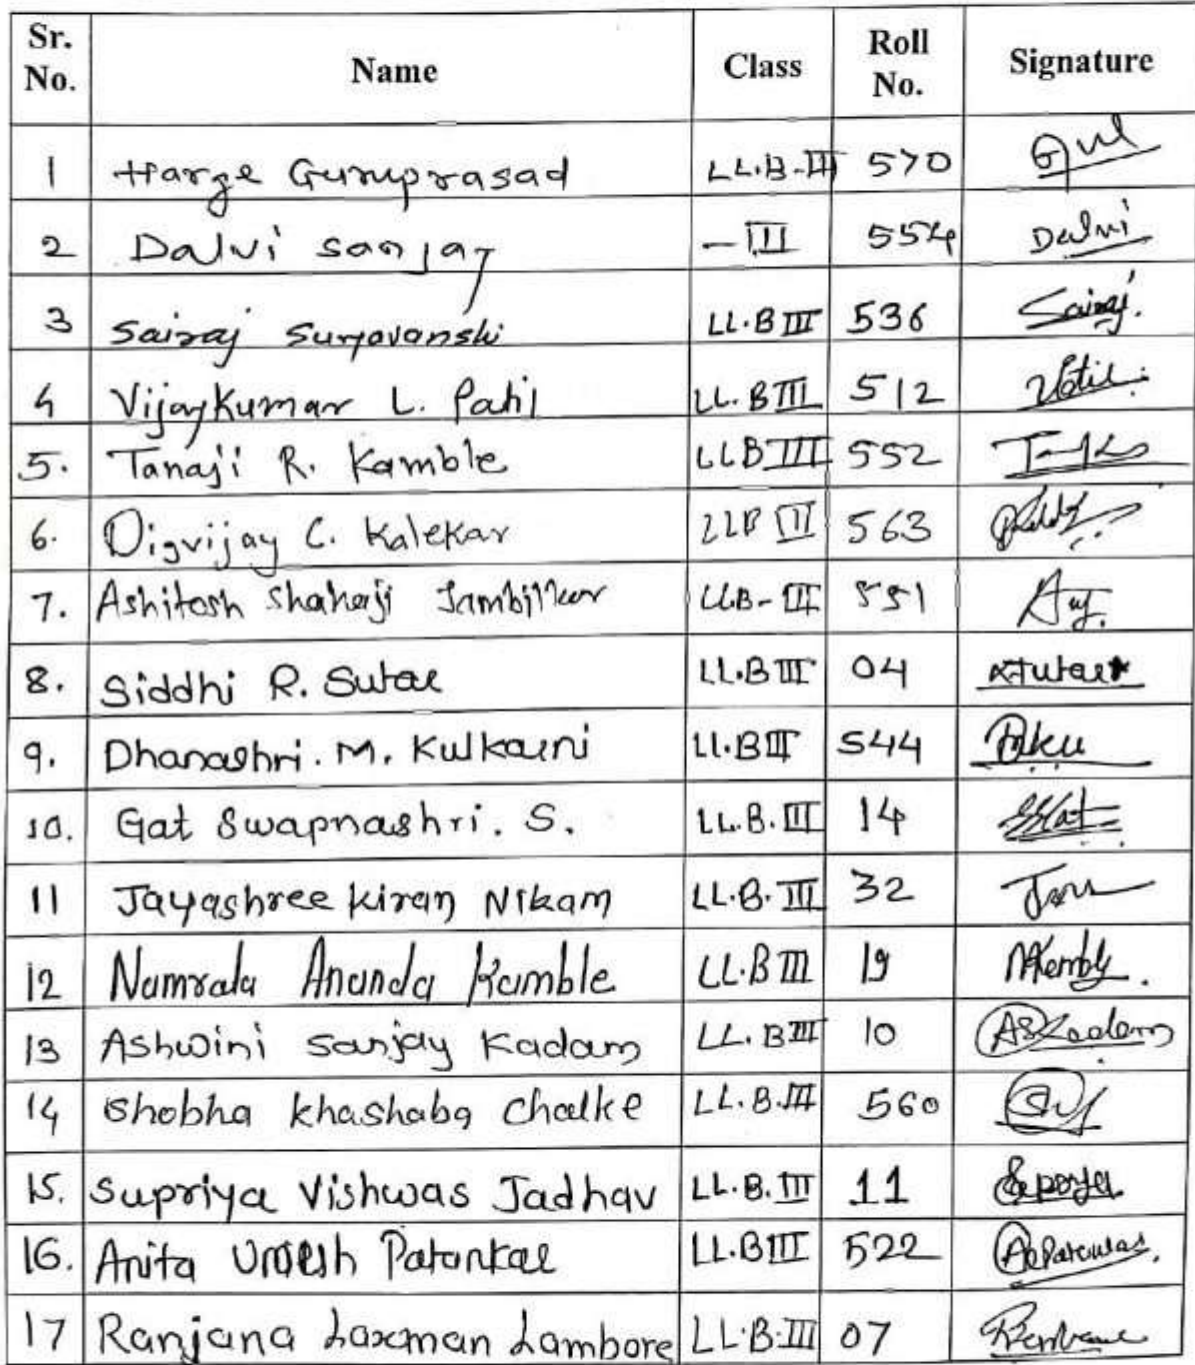 Sr. No. Name Class Roll No. Signature
1 Harge Guruprasad LL.B-III 570
2 Dalvi Sanjay -III 554 Dalvi
3 Sairaj Suryavanshi LL.B III 536 Sairaj.
4 Vijaykumar L. Patil LL.B III 512
5. Tanaji R. Kamble LLB III 552
6. Digvijay C. Kalekar LLB III 563
7. Ashitosh Shahaji LLB-III 551
8. Siddhi R. Sutar LL.B III 04
9. Dhanashri. M. Kulkarni LL.B III 544
10. Gat Swapnashri. S. LL.B.III 14
11 Jayashree Kiran Nikam LL.B.III 32
12 Namrata Ananda Kamble LL.B III 19
13 Ashwini Sanjay Kadam LL.B III 10 ASKadam
14 Shobha Khashaba Chalke LL.B.III 560
15. Supriya Vishwas Jadhav LL.B.III 11
16. Anita Umesh Patankar LL.B III 522
17 Ranjana Laxman Lambore LL.B.III 07